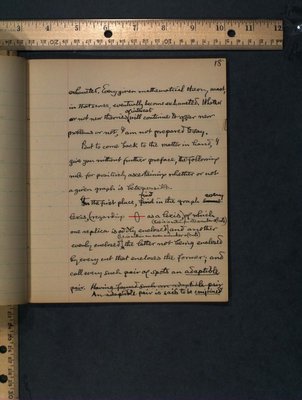 18
exhausted. Every given mathematical theory must,
in that sense, eventually become exhausted. Whether
of interest
or not new theories will continue to offer new
problems or not, I am not prepared to say.
But to come back to the matter in hand, I
give you without further preface, the following
rule for positively ascertaining whether or not
a given graph is
find every
In the first place, find in the graph
lexis, (regarding as a lexis) of which
one replica is oddly enclosed, and another
evenly enclosed, the latter not being enclosed
by every cut that encloses the former; and
call every such pair of spots an adaptible
pair. Having found such an adaptible pair
An adaptible pair is said to be